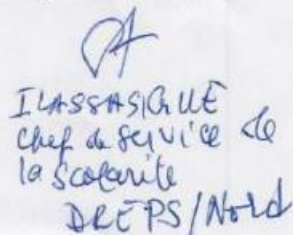 ILASSASIGUE
chef de service de
la scolarite
DREPS/Nord